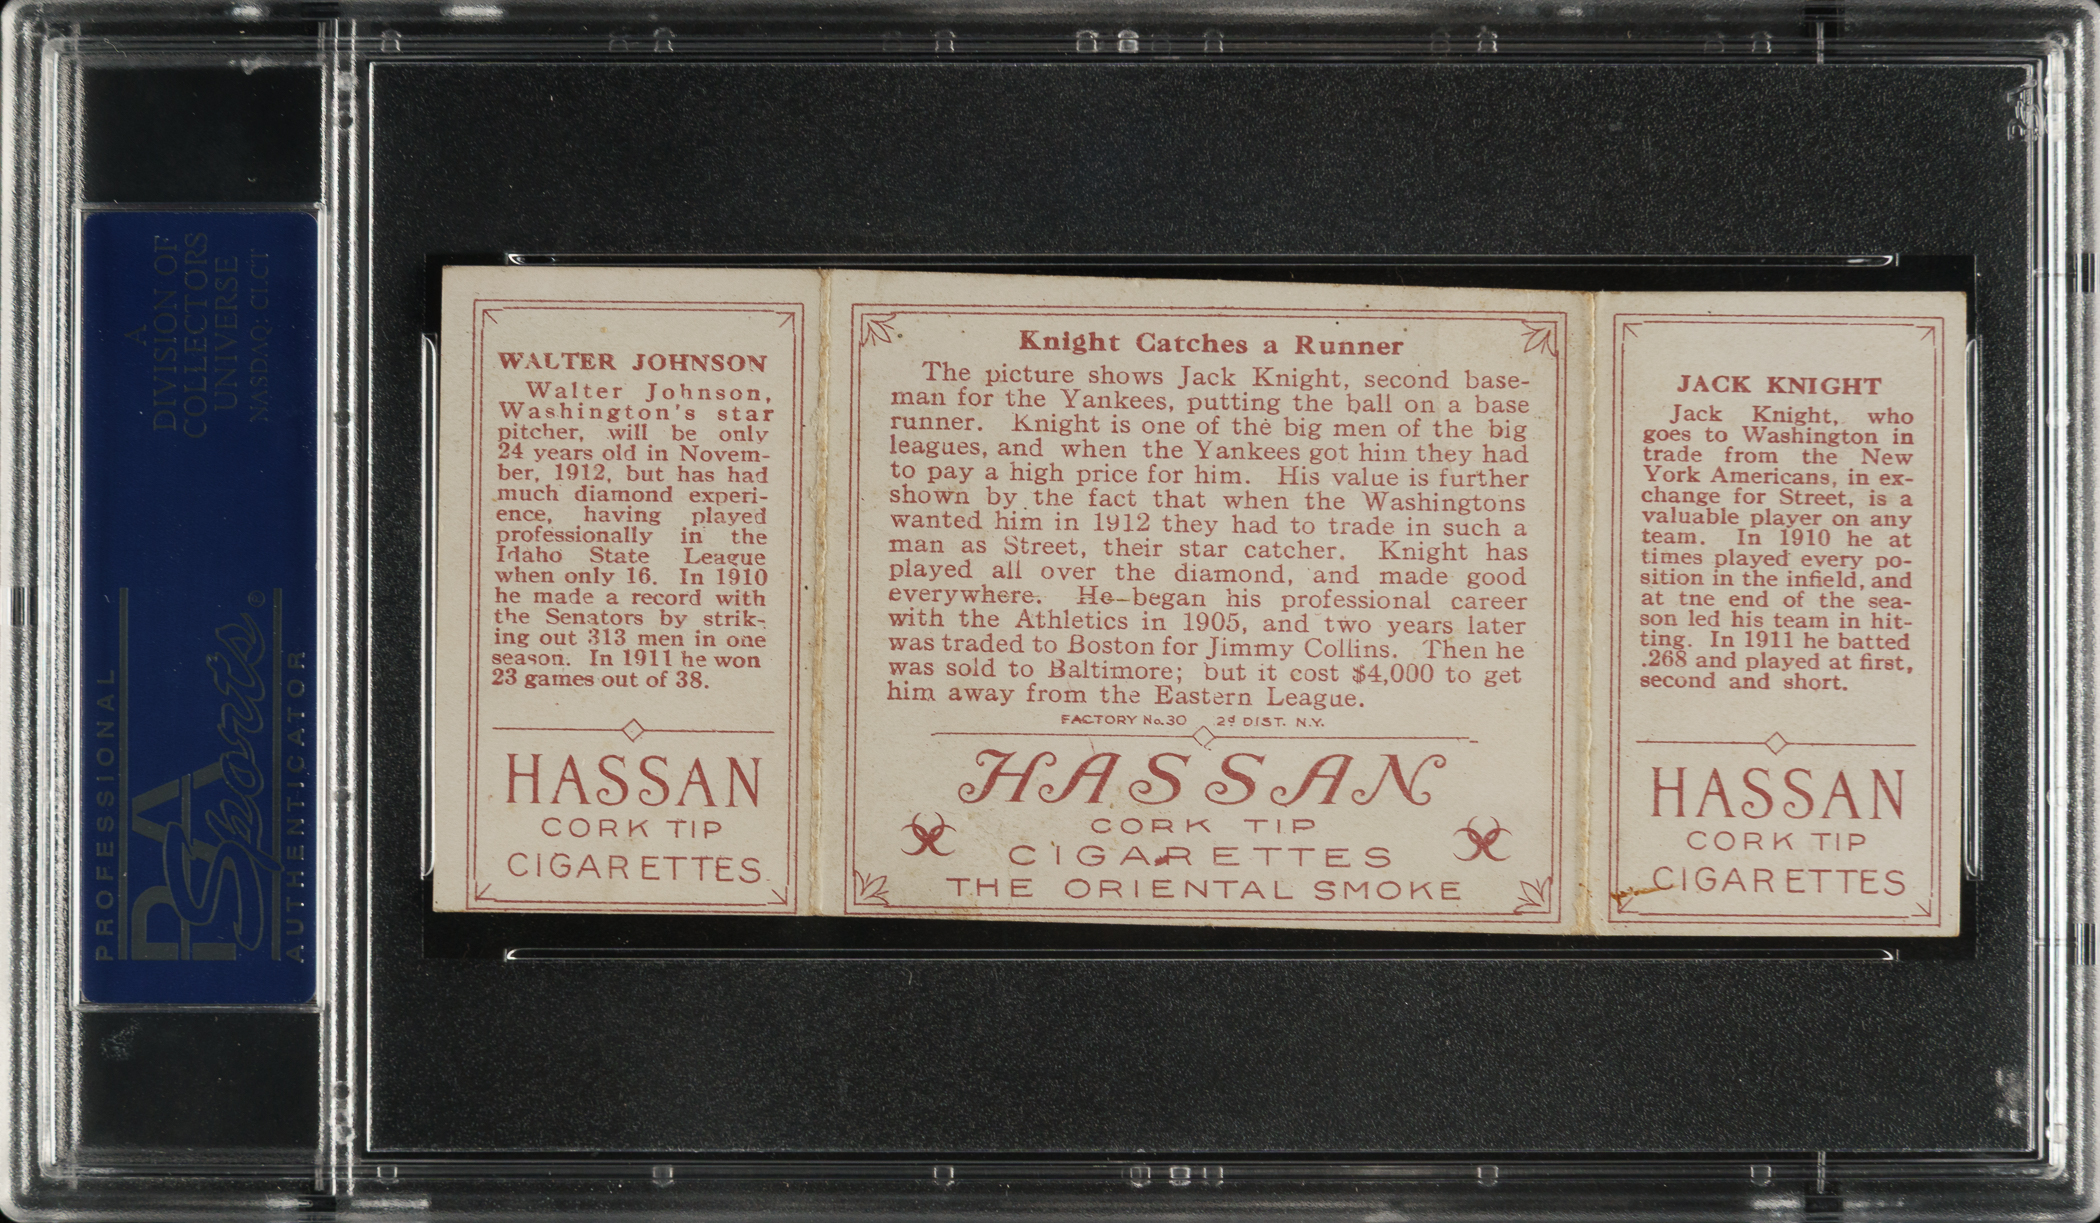 A
DIVISION OF
COLLECTORS
UNIVERSE
NASDAQ: CLCT
PROFESSIONAL
PSA
Sports®
AUTHENTICATOR
WALTER JOHNSON
Walter Johnson,
Washington's star
pitcher, will be only
24 years old in Novem-
ber, 1912, but has had
much diamond experi-
ence, having played
professionally in the
Idaho State League
when only 16. In 1910
he made a record with
the Senators by strik-
ing out 313 men in one
season. In 1911 he won
23 games out of 38.
HASSAN
CORK TIP
CIGARETTES
Knight Catches a Runner
The picture shows Jack Knight, second base-
man for the Yankees, putting the ball on a base
runner. Knight is one of the big men of the big
leagues, and when the Yankees got him they had
to pay a high price for him. His value is further
shown by the fact that when the Washingtons
wanted him in 1912 they had to trade in such a
man as Street, their star catcher. Knight has
played all over the diamond, and made good
everywhere. He began his professional career
with the Athletics in 1905, and two years later
was traded to Boston for Jimmy Collins. Then he
was sold to Baltimore; but it cost $4,000 to get
him away from the Eastern League.
FACTORY No.30 2d DIST. N.Y.
HASSAN
CORK TIP
CIGARETTES
THE ORIENTAL SMOKE
JACK KNIGHT
Jack Knight, who
goes to Washington in
trade from the New
York Americans, in ex-
change for Street, is a
valuable player on any
team. In 1910 he at
times played every po-
sition in the infield, and
at the end of the sea-
son led his team in hit-
ting. In 1911 he batted
.268 and played at first,
second and short.
HASSAN
CORK TIP
CIGARETTES